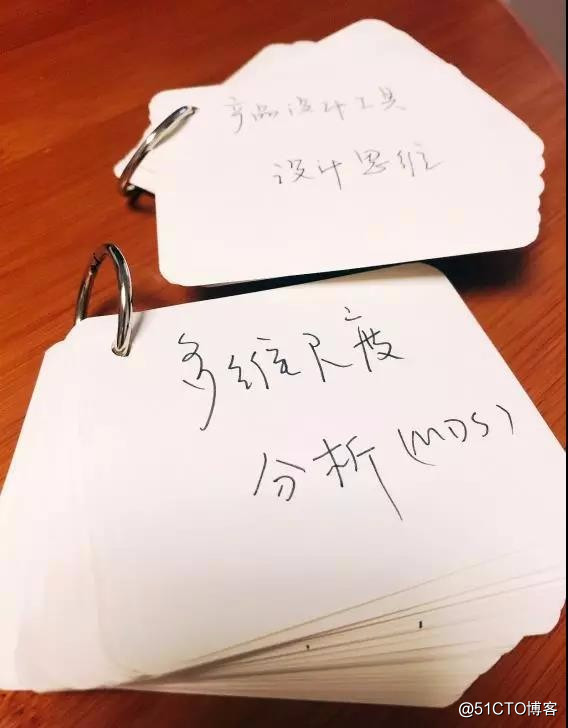 产品设计工具
设计思维
多维尺度
分析(MDS)
@51CTO博客